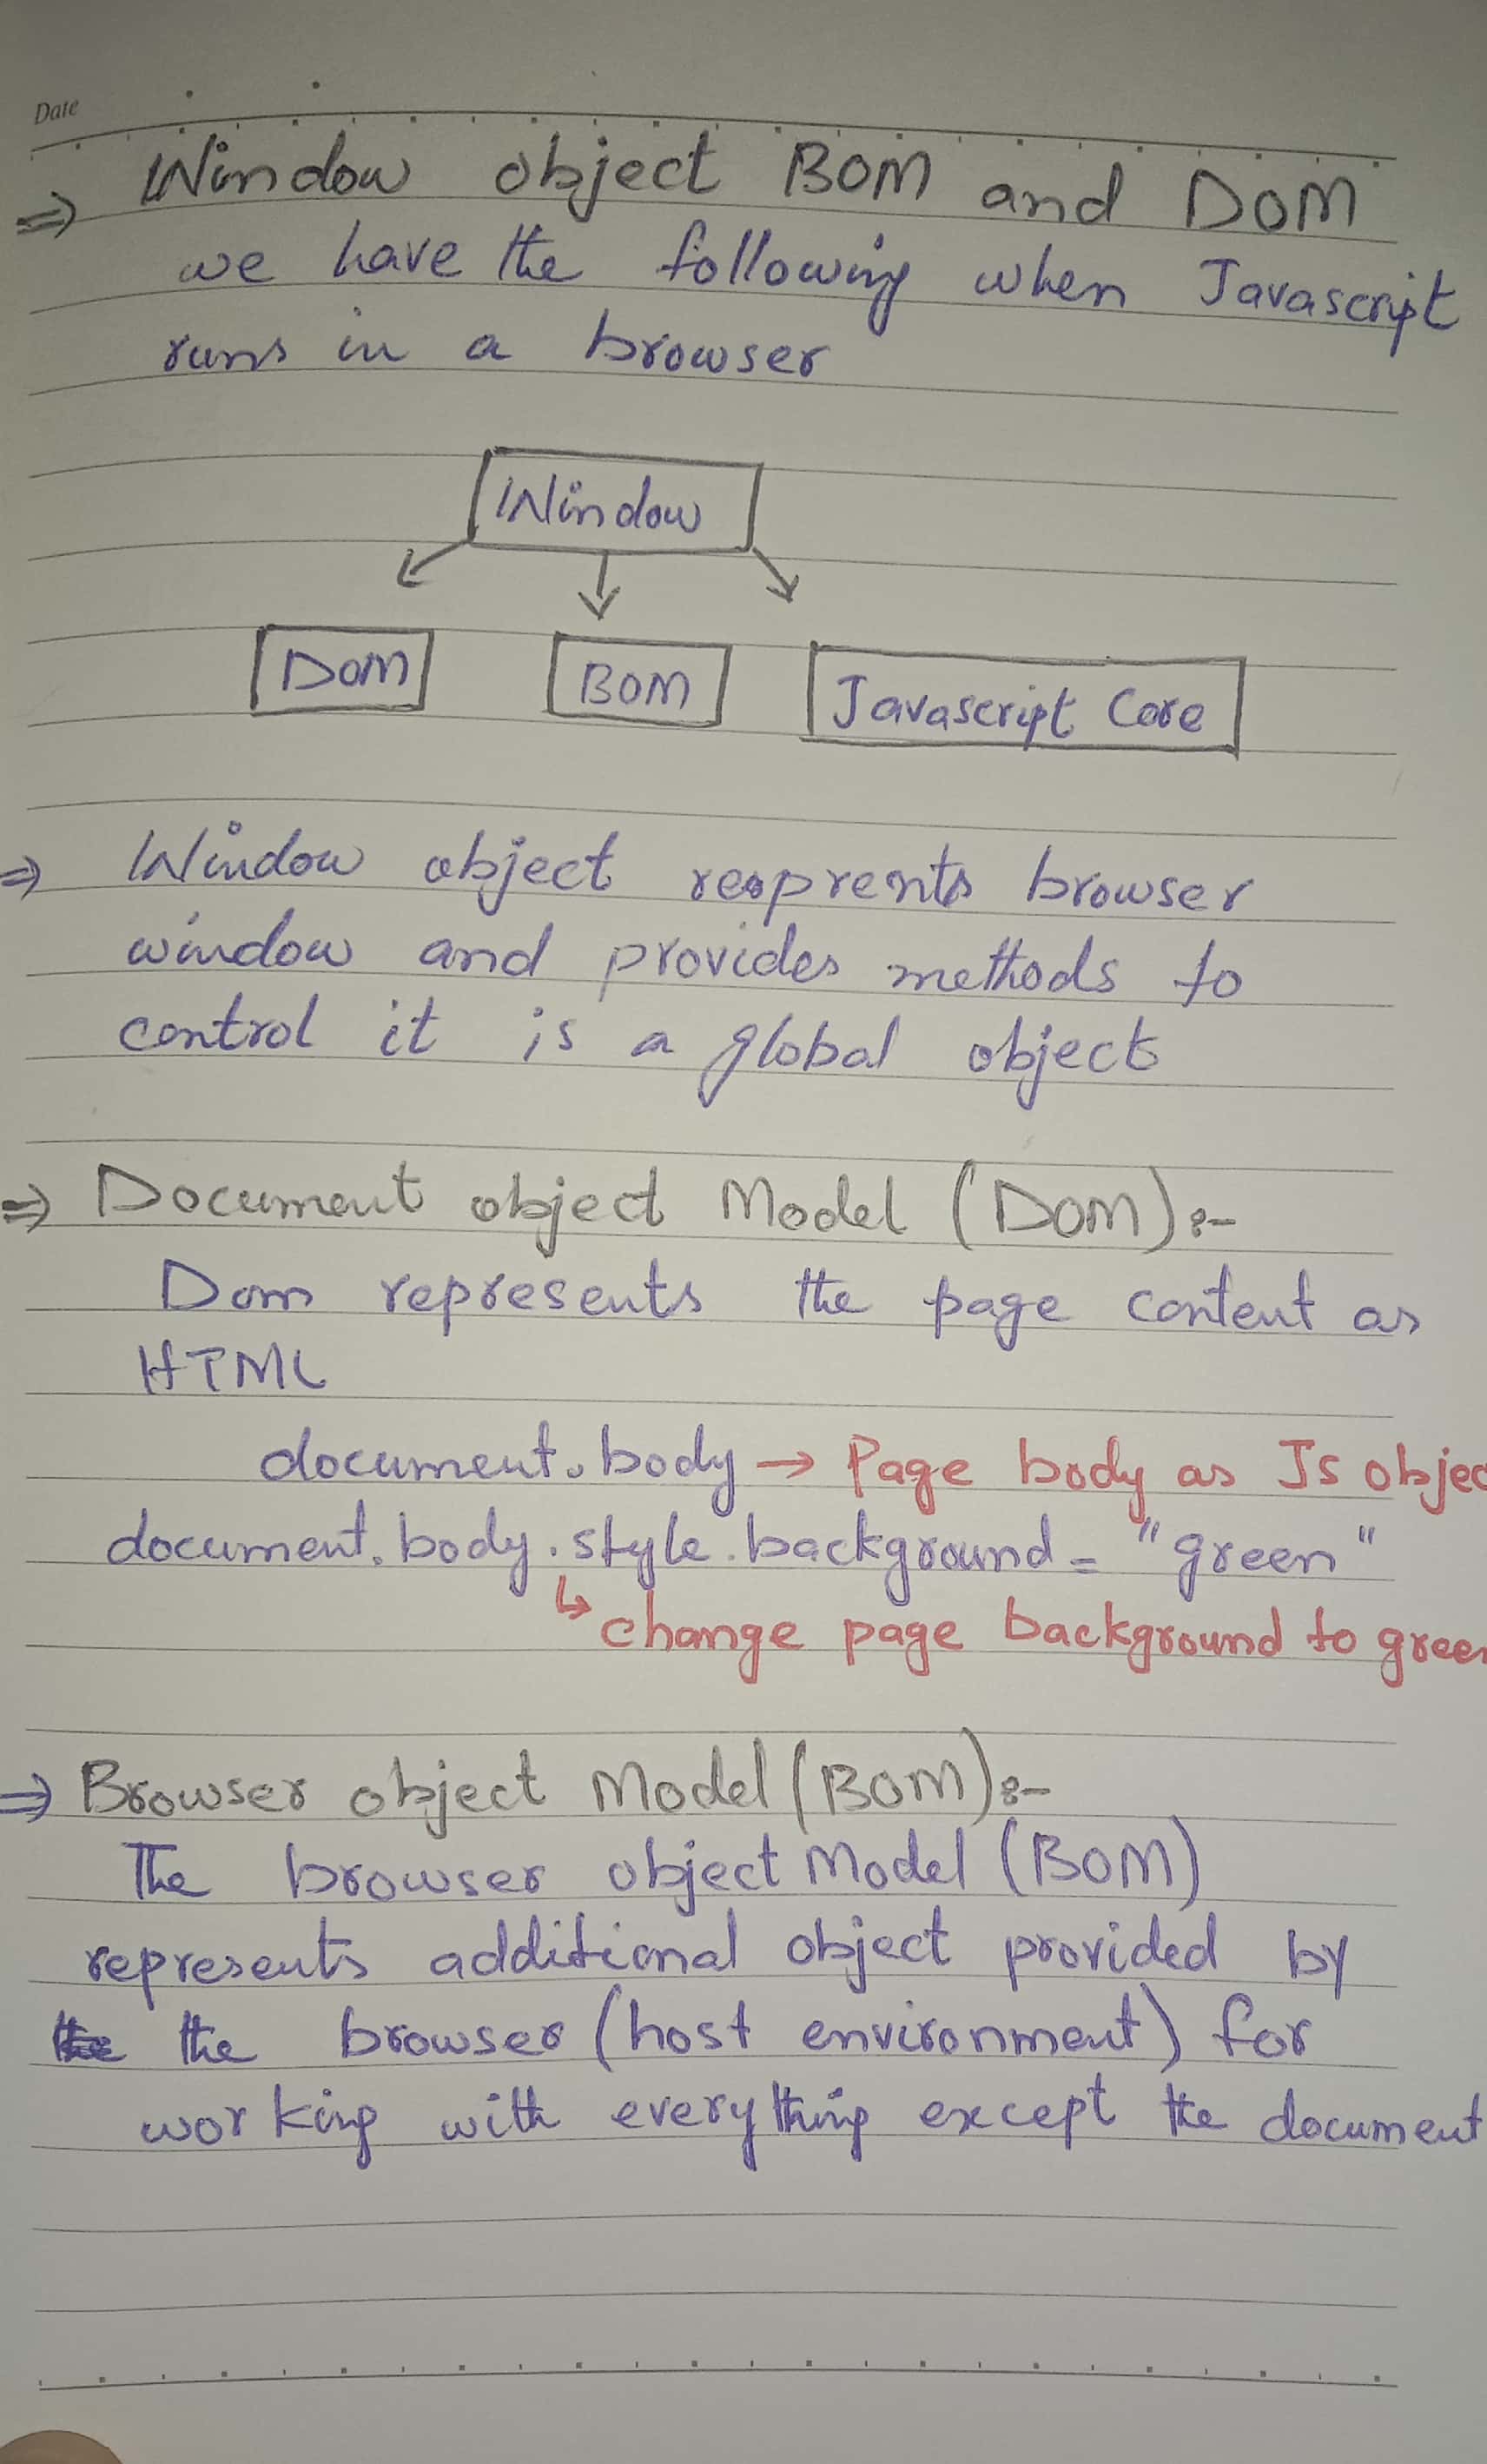 Date
⇒ Window object BOM and DOM
we have the following when Javascript
runs in a browser
Window
DOM BOM Javascript Core
⇒ Window object reoprents browser
window and provides methods to
control it is a global object
⇒ Document object Model (DOM):-
Dom represents the page content as
HTML
document.body → Page body as Js objec
document.body.style.background = "green"
↳ change page background to green
⇒ Browser object Model (BOM):-
The browser object Model (BOM)
represents additional object provided by
the browser (host environment) for
working with everything except the document